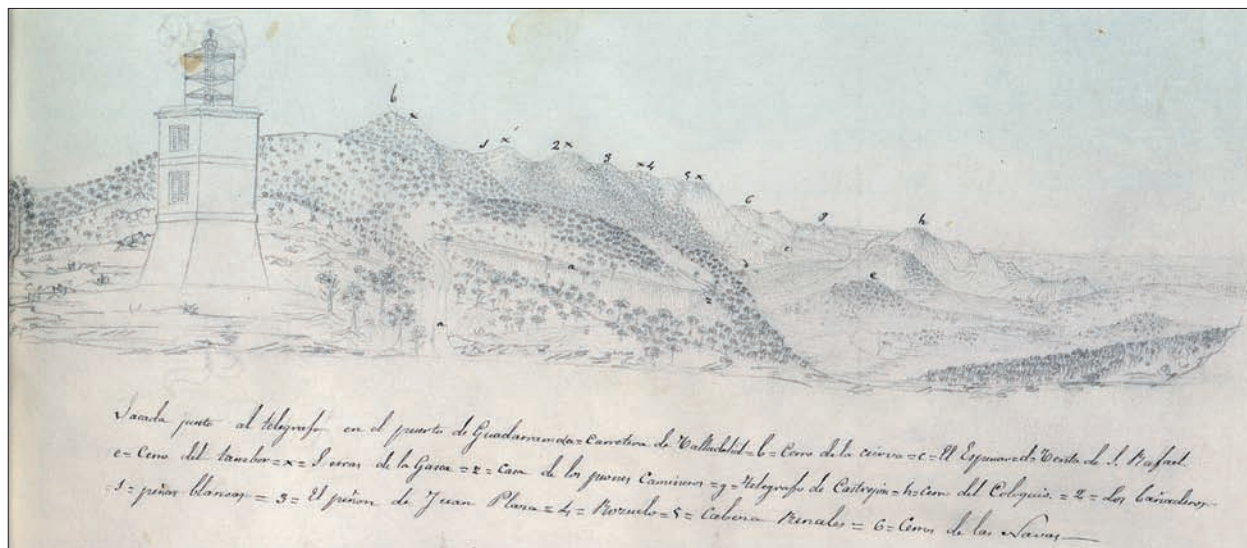 b
x
1 x
2 x
3
x 4
5 x
6
g
h
c
d
e
a
z
a
Sacada junto al telegrafo en el puerto de Guadarrama=a=Carretera de Valladolid=b=Cerro de la cueva=c=El Espinar=d=Venta de S. Rafael.
e=Cerro del tambor=x= de la =z=casa de los peones Camineros=g=Telegrafo de Castrejon=h=cerro del Coloquio.=2=Los bañaderos
=1=peñas blancas=3=El piñon de Juan Plaza=4= =5=Cabeza Renales=6=Cerros de las Navas